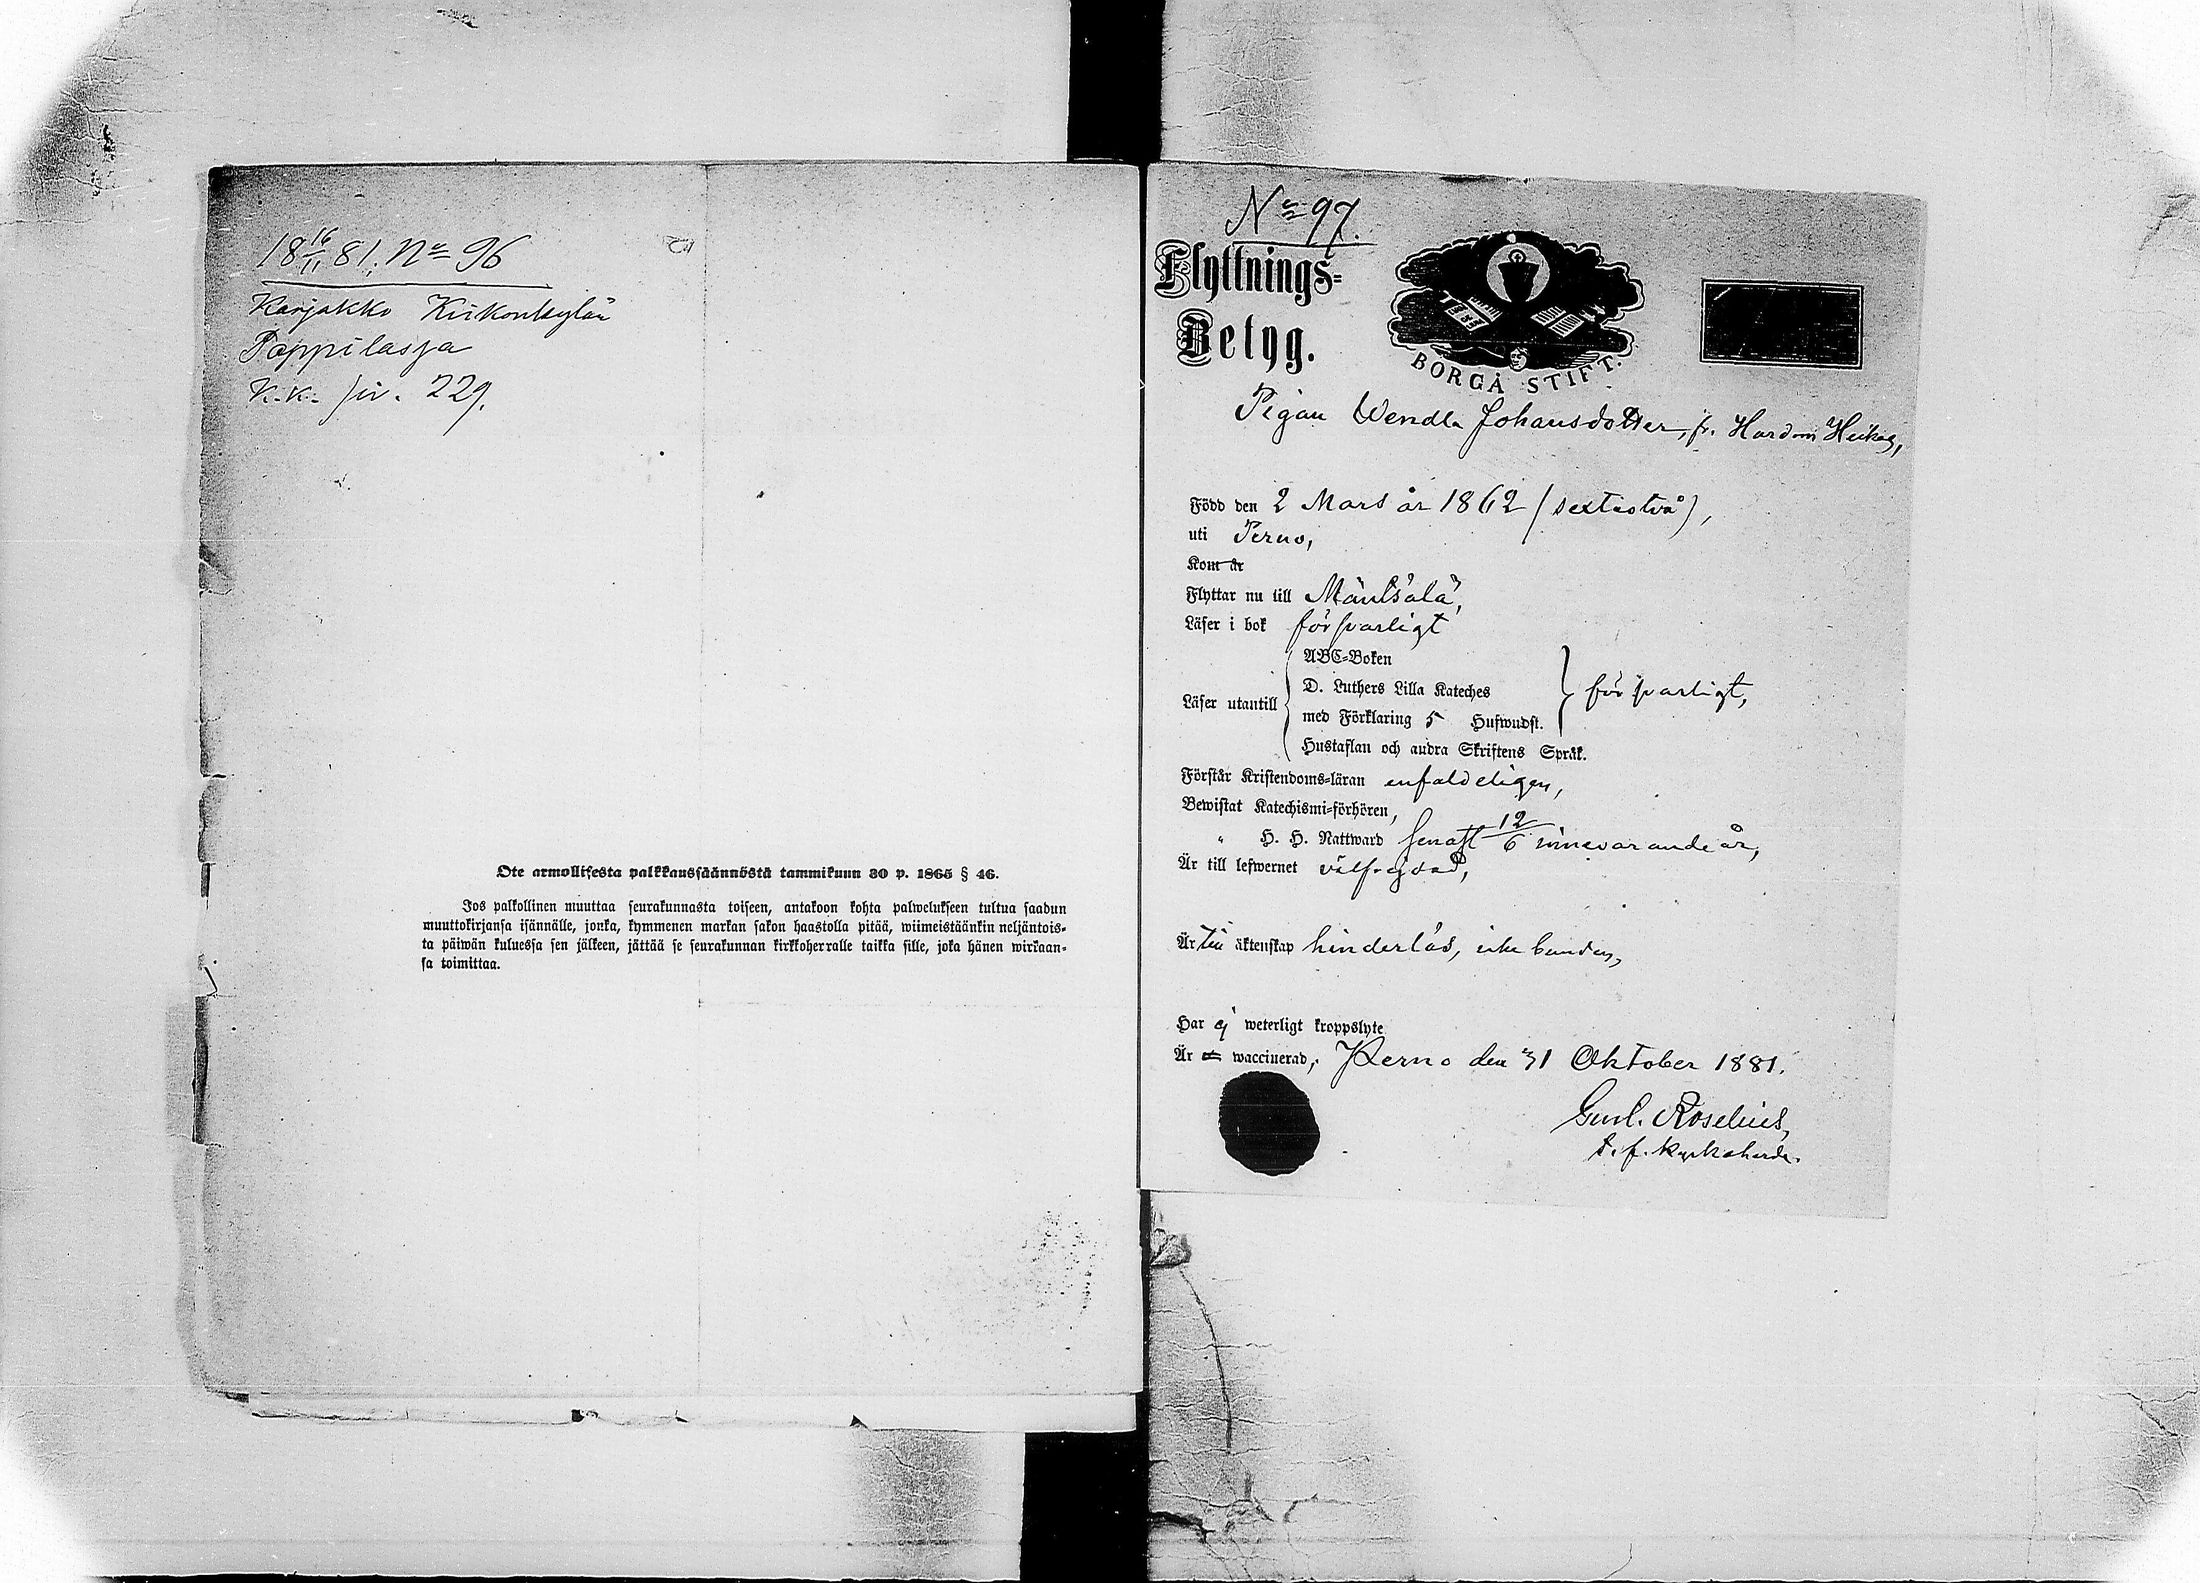 18 16/11 81. No 96
Karjakko Kirkonkylän
Pappilassa
K.K. siv. 229.
Ote armollisesta palkkaussäännöstä tammikuun 30 p. 1865 § 46.
Jos palkollinen muuttaa seurakunnasta toiseen, antakoon kohta palwelukseen tultua saadun
muuttokirjansa isännälle, jonka, kymmenen markan sakon haastolla pitää, wiimeistäänkin neljäntois-
ta päiwän kuluessa sen jälkeen, jättää se seurakunnan kirkkoherralle taikka sille, joka hänen wirkaan-
sa toimittaa.
No 97.
Flyttnings-
Betyg.
BORGÅ STIFT.
Pigan Wendla Johansdotter, fr. Hardom Heikas,
Född den 2 Mars år 1862 (sextiotvå),
uti Perno,
Kom år
Flyttar nu till Mäntsälä,
Läser i bok försvarligt
ABC-Boken
D. Luthers Lilla Kateches
Läser utantill med Förklaring 5 Hufwudst. försvarligt,
Hustaflan och andra Skriftens Språk.
Förstår Kristendoms-läran enfaldeligen,
Bewistat Katechismi-förhören,
" H. H. Nattward senast 12/6 innevarande år,
Är till lefwernet välfrejdad,
Är till äktenskap hinderlös, icke bunden,
Har ej weterligt kroppslyte
Är waccinerad; Perno den 31 Oktober 1881.
Roselius,
t. f. kyrkoherde.